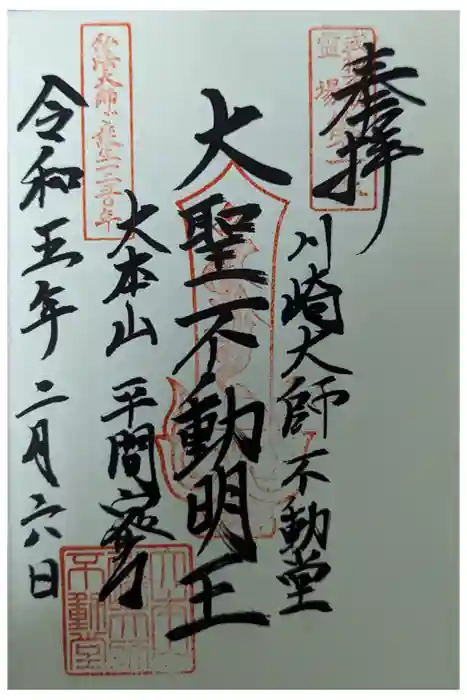 奉拝
川崎大師不動堂
大聖不動明王
大本山 平間寺
令和五年二月六日
弘法大師ご誕生一二五〇年
不動堂